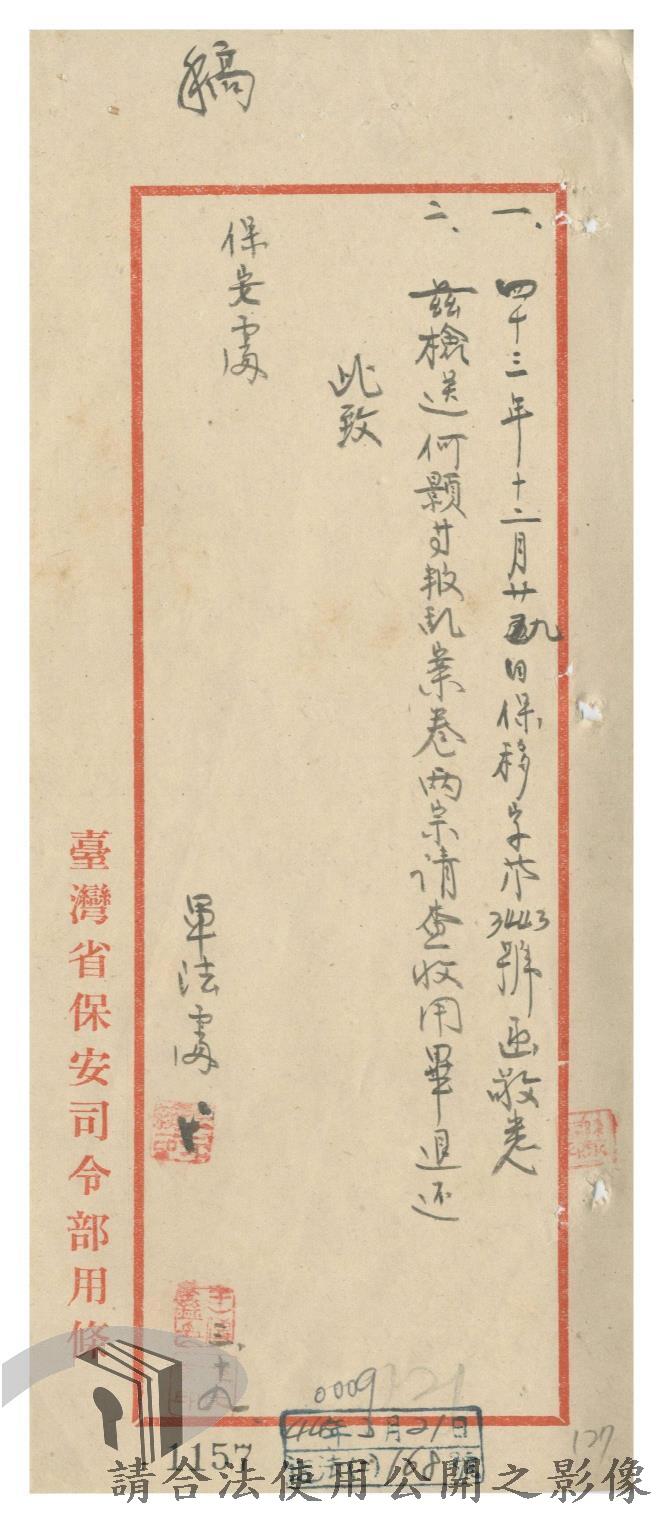 稿
一、四十三年十二月廿九日保移字第3443號函敬悉
二、茲檢送何顯等叛乱案卷两宗请查收用畢退还
此致
保安處
軍法處
三、十九
臺灣省保安司令部用條
0009
44年3月21日
168號
127
1157
請合法使用公開之影像